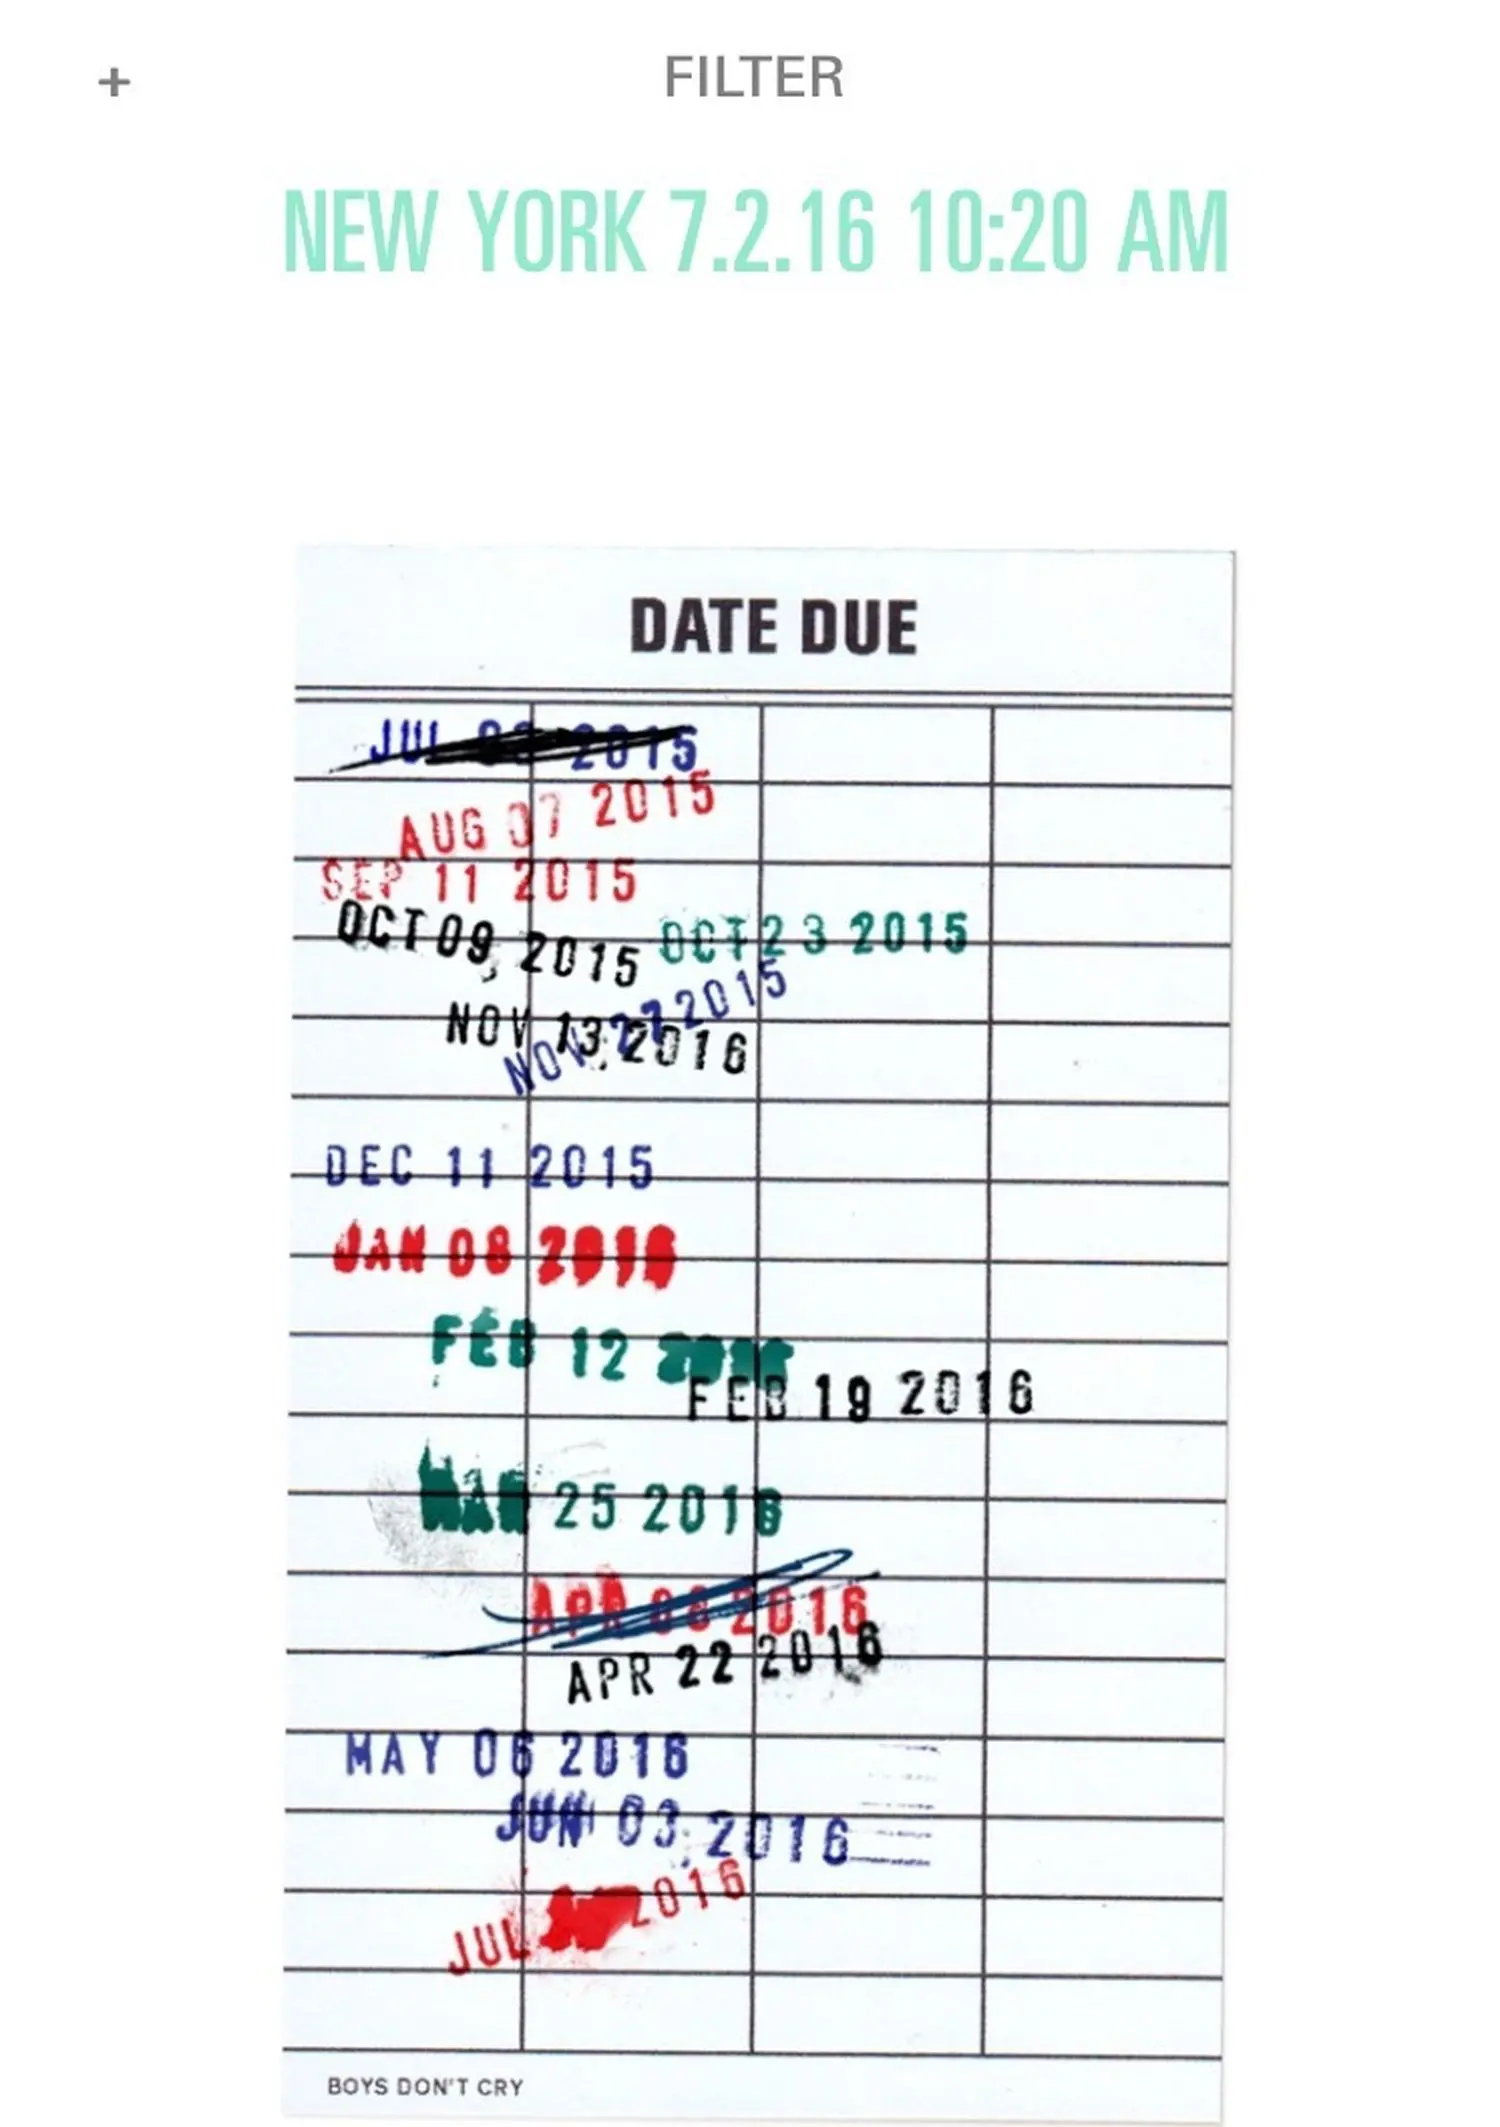 + FILTER
NEW YORK 7.2.16 10:20 AM
DATE DUE
JUL 2015
AUG 07 2015
SEP 11 2015
OCT 09, 2015
OCT 23 2015
NOV 27 2015
NOV 13, 2016
DEC 11 2015
JAN 08 2016
FEB 12
FEB 19 2016
MAR 25 2016
APR 06 2016
APR 22 2016
MAY 06 2016
JUN 03, 2016
JUL 2016
BOYS DON'T CRY